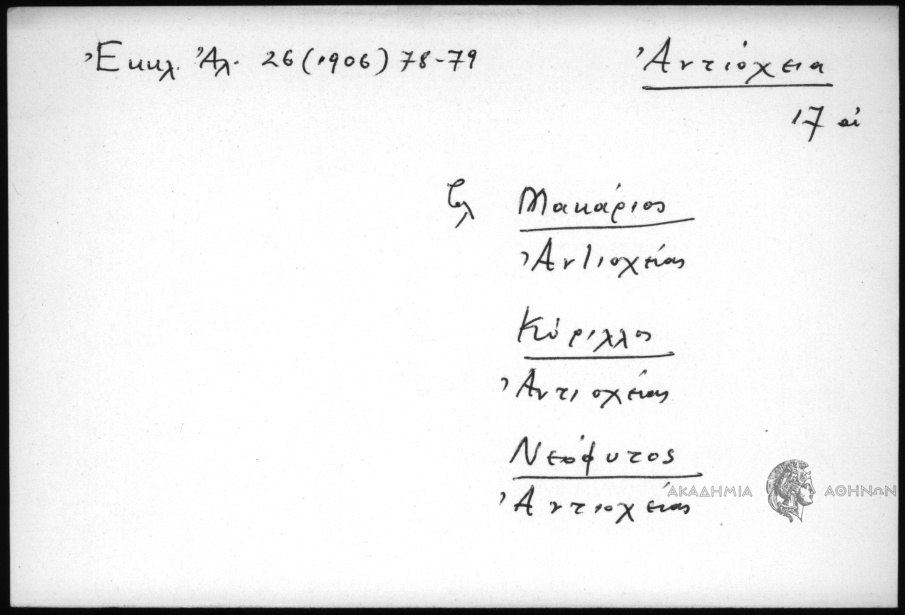 Ἐκκλ. Ἀλ. 26 (1906) 78-79
Ἀντιόχεια
17 αἰ
Μακάριος
Ἀντιοχείας
Κύριλλος
Ἀντιοχείας
Νεόφυτος
Ἀντιοχείας
ΑΚΑΔΗΜΙΑ ΑΘΗΝΩΝ